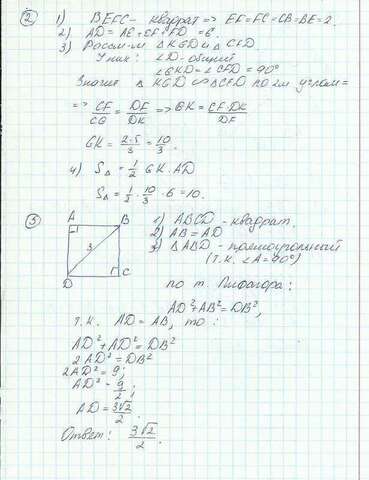 ② 1) BEFC - квадрат => EF=FC=CB=BE=2.
2) AD = AE+EF+FD =6.
3) Рассм-м △KGD и △CFD
У них: ∠D-общий
∠GKD=∠CFD=90°
Значит △KGD ∾ △CFD по 2м углам=
=> CF/CG = DF/DK => GK = CF·DK/DF
GK = 2·5/3 = 10/3.
4) S△ = 1/2 GK·AD
S△ = 1/2 · 10/3 · 6 = 10.
③ A B 1) ABCD - квадрат.
2) AB=AD
3 3) △ABD - прямоугольный
D C (т.к. ∠A=90°)
по т. Пифагора:
AD²+AB²=DB²,
т.к. AD=AB, то:
AD²+AD²=DB²
2AD²=DB²
2AD²=9;
AD²=9/2;
AD=3√2/2.
Ответ: 3√2/2.